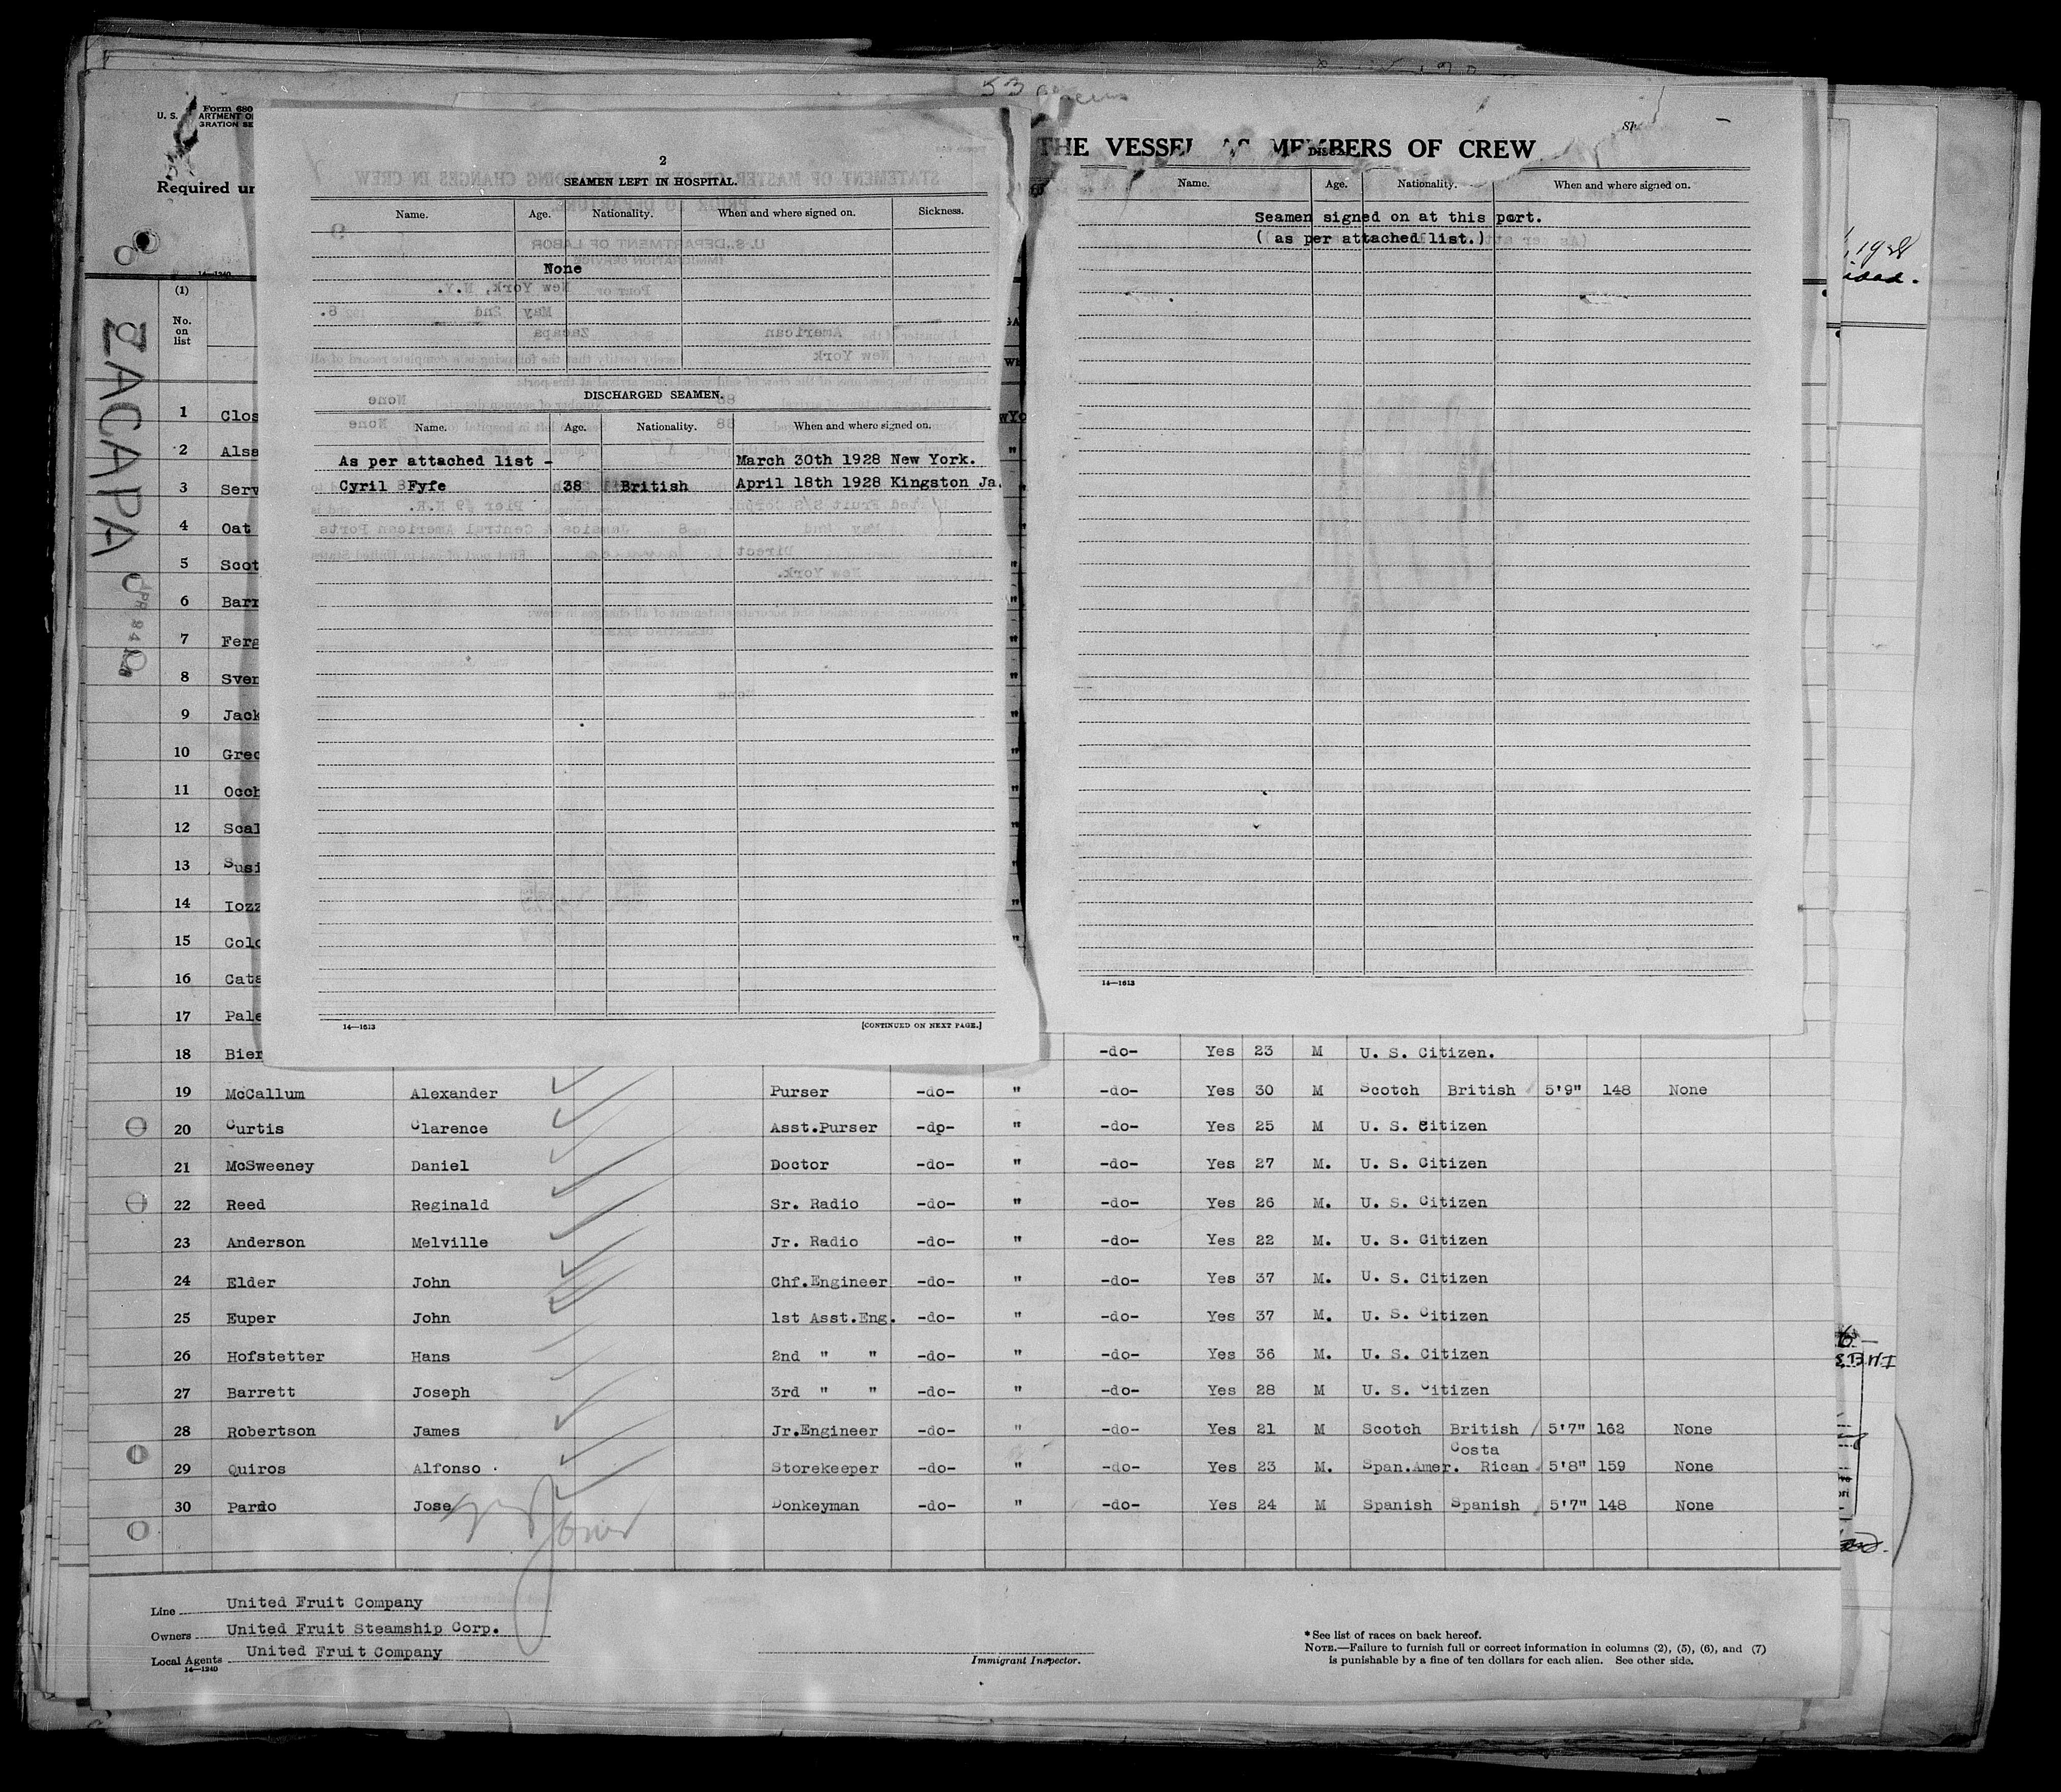 53
Form 680
U. S.
ARTMENT O
GRATION SE
Required un
THE VESSEL AS MEMBERS OF CREW
2
SEAMEN LEFT IN HOSPITAL.
Name. Age. Nationality. When and where signed on. Sickness.
None
DISCHARGED SEAMEN.
Name. Age. Nationality. When and where signed on.
As per attached list - March 30th 1928 New York.
Cyril Fyfe 38 British April 18th 1928 Kingston Ja.
14—1613 [CONTINUED ON NEXT PAGE.]
Name. Age. Nationality. When and where signed on.
Seamen signed on at this port.
( as per attached list.)
14—1613
, 1928
ZACAPA
14—1240
(1)
No.
on
list
1 Clos
2 Alss
3 Serv
4 Oat
5 Scot
6 Barr
7 Ferg
8 Sven
9 Jack
10 Grec
11 Occh
12 Scal
13 Susi
14 Iozz
15 Colo
16 Cata
17 Pale
18 Bier -do- Yes 23 M U. S. Citizen.
19 McCallum Alexander Purser -do- " -do- Yes 30 M Scotch British 5'9" 148 None
20 Curtis Clarence Asst.Purser -dp- " -do- Yes 25 M U. S. Citizen
21 McSweeney Daniel Doctor -do- " -do- Yes 27 M. U. S. Citizen
22 Reed Reginald Sr. Radio -do- " -do- Yes 26 M. U. S. Citizen
23 Anderson Melville Jr. Radio -do- " -do- Yes 22 M. U. S. Citizen
24 Elder John Chf.Engineer -do- " -do- Yes 37 M. U. S. Citizen
25 Euper John 1st Asst.Eng. -do- " -do- Yes 37 M. U. S. Citizen
26 Hofstetter Hans 2nd " " -do- " -do- Yes 36 M. U. S. Citizen
27 Barrett Joseph 3rd " " -do- " -do- Yes 28 M U. S. Citizen
28 Robertson James Jr.Engineer -do- " -do- Yes 21 M Scotch British 5'7" 162 None
29 Quiros Alfonso Storekeeper -do- " -do- Yes 23 M. Span.Amer. Costa Rican 5'8" 159 None
30 Pardo Jose Donkeyman -do- " -do- Yes 24 M Spanish Spanish 5'7" 148 None
Line United Fruit Company
Owners United Fruit Steamship Corp.
Local Agents United Fruit Company
14—1240
Immigrant Inspector.
* See list of races on back hereof.
NOTE.—Failure to furnish full or correct information in columns (2), (5), (6), and (7)
is punishable by a fine of ten dollars for each alien. See other side.